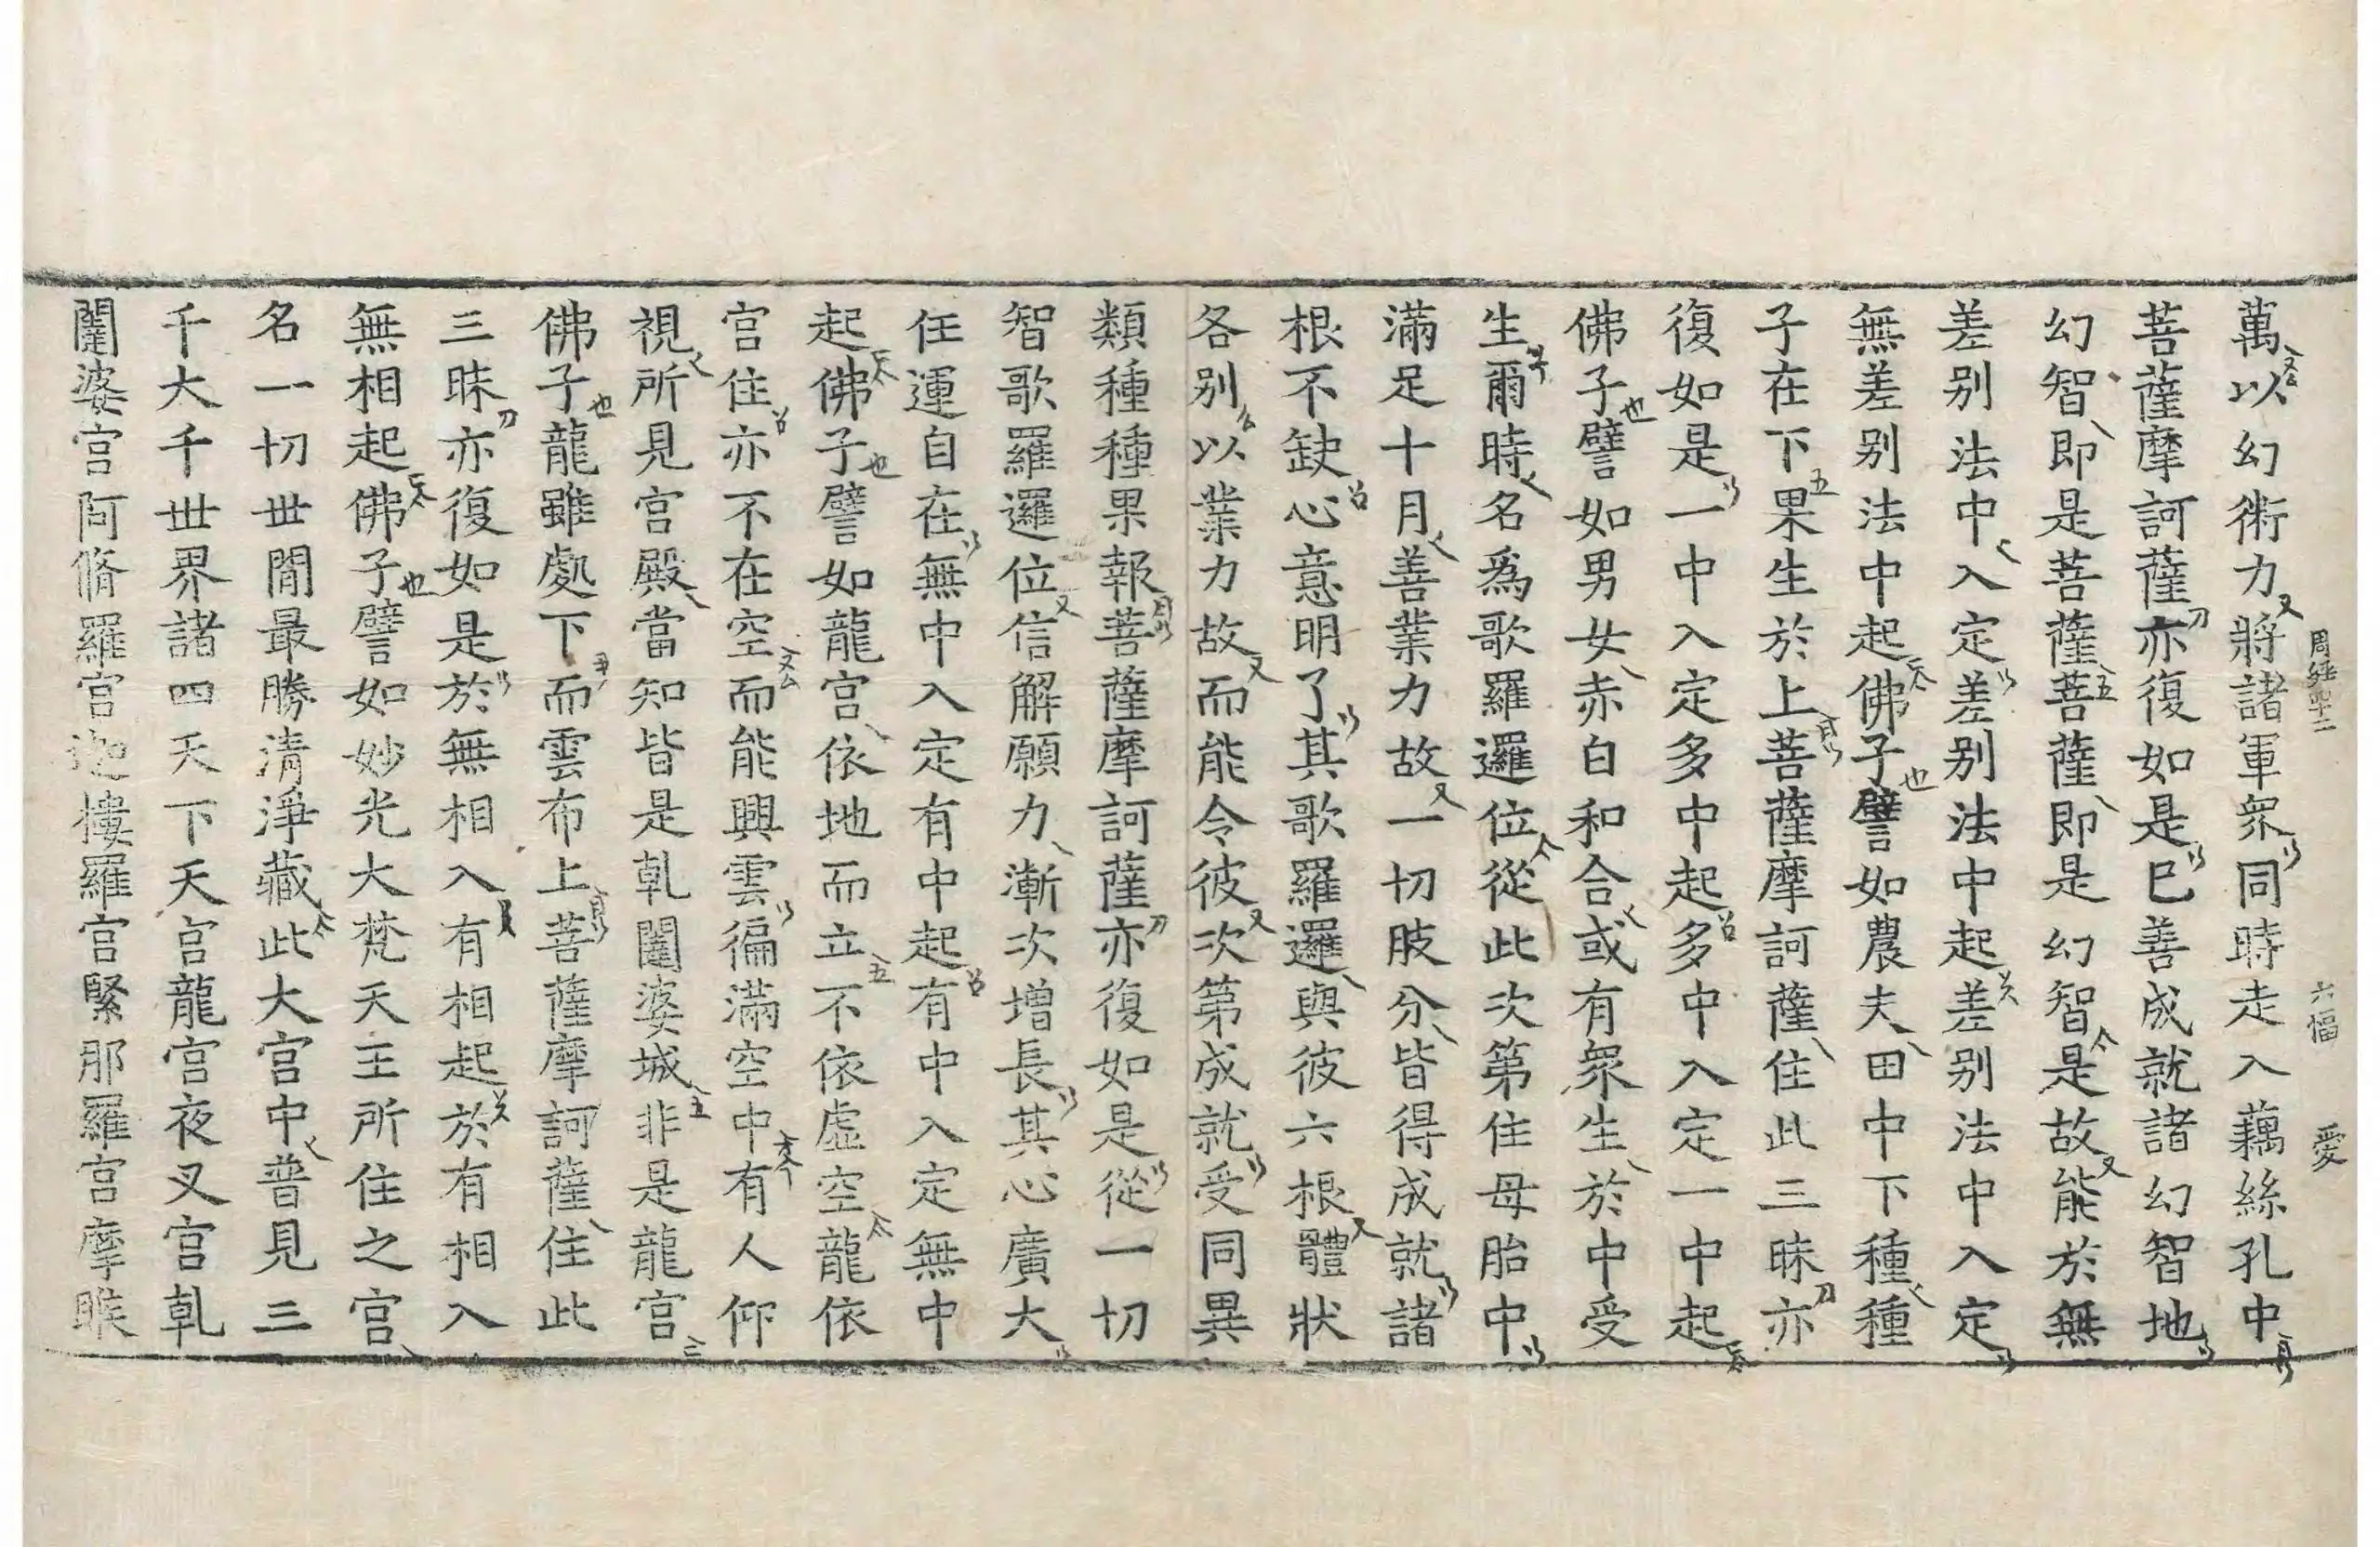 周經四十二 六幅 愛
萬以幻術力將諸軍衆同時走入藕絲孔中
菩薩摩訶薩亦復如是已善成就諸幻智地
幻智即是菩薩菩薩即是幻智是故能於無
差别法中入定差别法中起差别法中入定
無差别法中起佛子譬如農夫田中下種種
子在下果生於上菩薩摩訶薩住此三昧亦
復如是一中入定多中起多中入定一中起
佛子譬如男女赤白和合或有衆生於中受
生爾時名爲歌羅邏位從此次第住母胎中
滿足十月善業力故一切肢分皆得成就諸
根不缺心意明了其歌羅邏與彼六根體狀
各别以業力故而能令彼次第成就受同異
類種種果報菩薩摩訶薩亦復如是從一切
智歌羅邏位信解願力漸次增長其心廣大
任運自在無中入定有中起有中入定無中
起佛子譬如龍宮依地而立不依虛空龍依
宮住亦不在空而能興雲徧滿空中有人仰
視所見宮殿當知皆是乹闥婆城非是龍宮
佛子龍雖處下而雲布上菩薩摩訶薩住此
三昧亦復如是於無相入有相起於有相入
無相起佛子譬如妙光大梵天王所住之宮
名一切世間最勝清淨藏此大宮中普見三
千大千世界諸四天下天宮龍宮夜叉宮乹
闥婆宮阿脩羅宮迦樓羅宮緊那羅宮摩睺